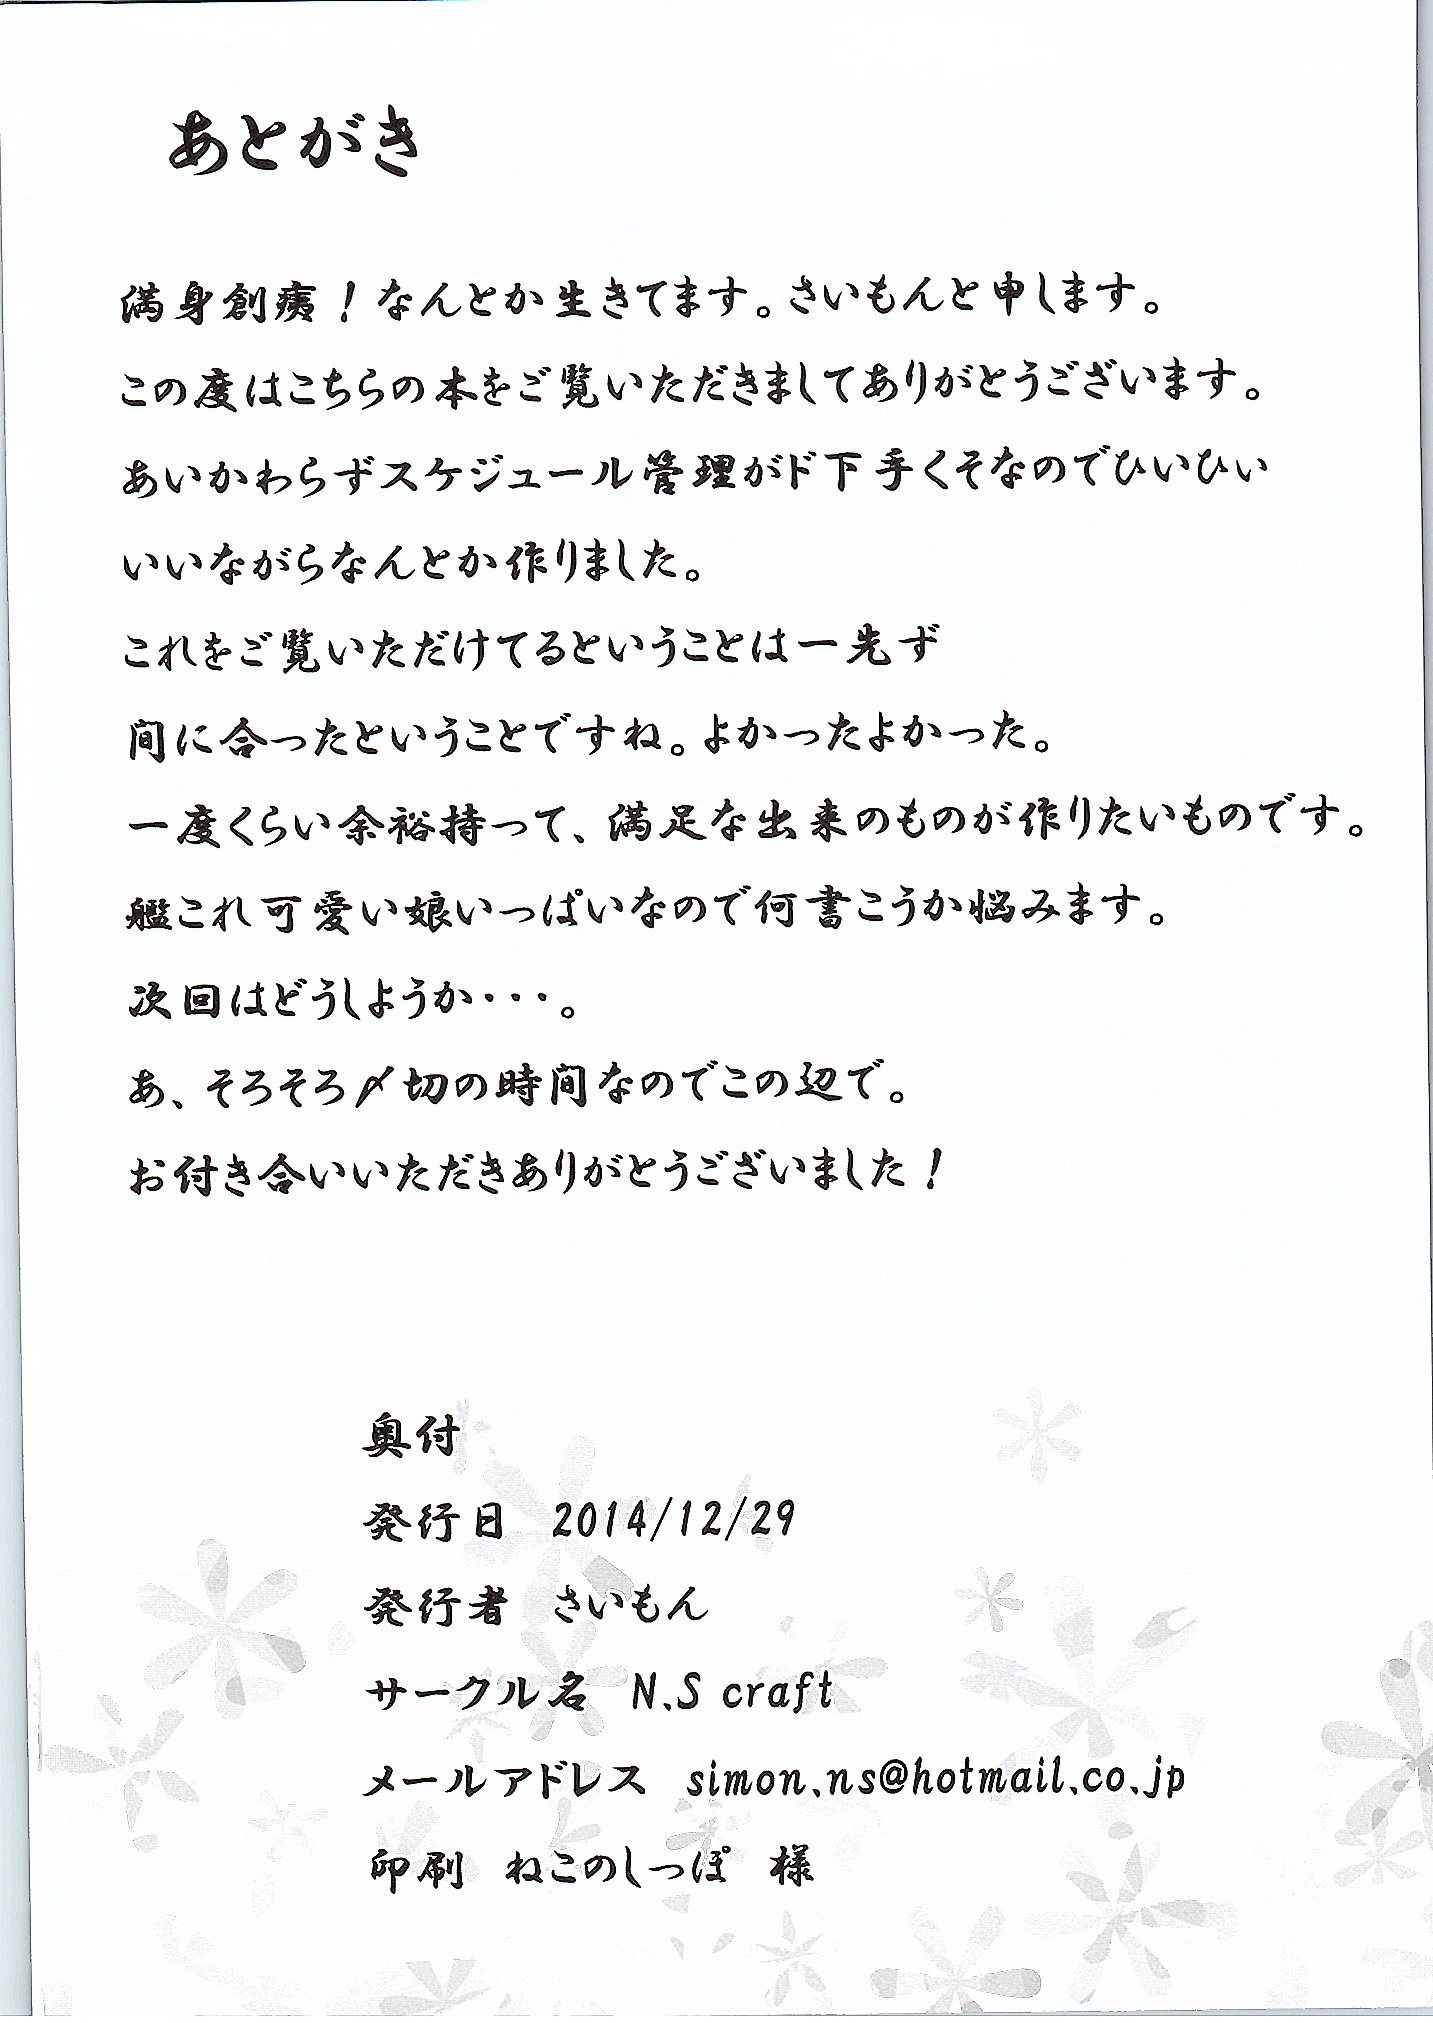 あとがき
満身創痍！なんとか生きてます。さいもんと申します。
この度はこちらの本をご覧いただきましてありがとうございます。
あいかわらずスケジュール管理がド下手くそなのでひいひい
いいながらなんとか作りました。
これをご覧いただけてるということは一先ず
間に合ったということですね。よかったよかった。
一度くらい余裕持って、満足な出来のものが作りたいものです。
艦これ可愛い娘いっぱいなので何書こうか悩みます。
次回はどうしようか・・・。
あ、そろそろ〆切の時間なのでこの辺で。
お付き合いいただきありがとうございました！
奥付
発行日　2014/12/29
発行者　さいもん
サークル名　N.S craft
メールアドレス　simon.ns@hotmail.co.jp
印刷　ねこのしっぽ　様